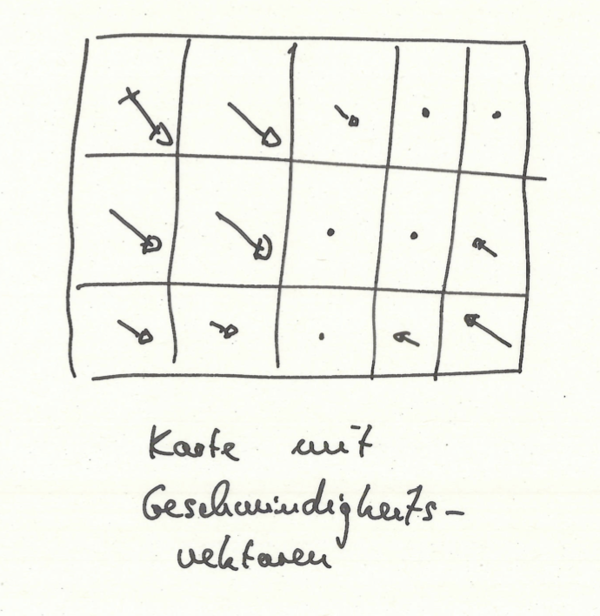 Karte mit
Geschwindigkeits-
vektoren